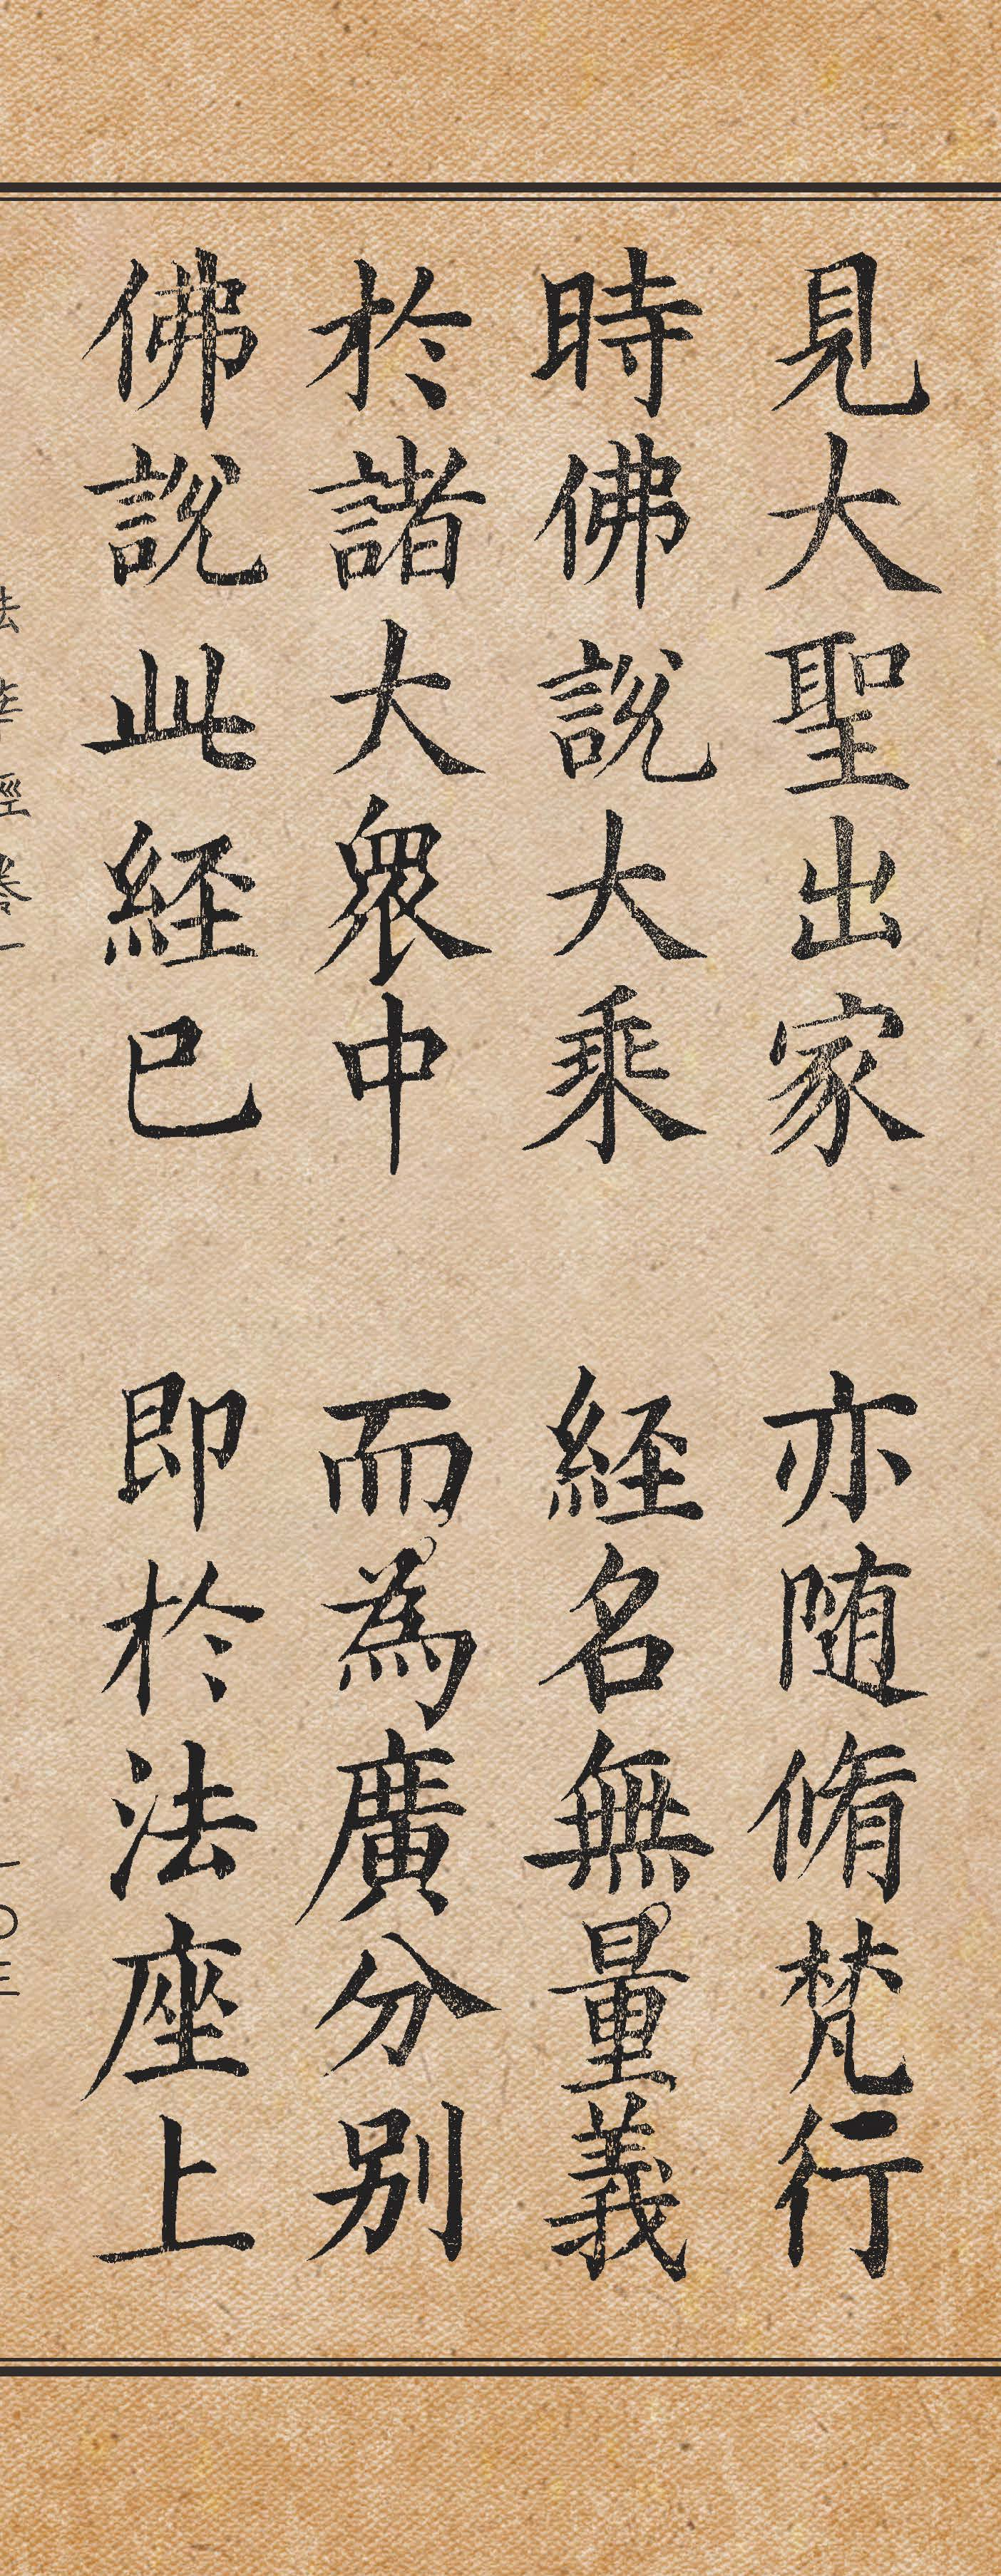 見大聖出家 亦随脩梵行
時佛說大乘 経名無量義
於諸大衆中 而為廣分别
佛說此経已 即於法座上
法華經卷一 一〇三